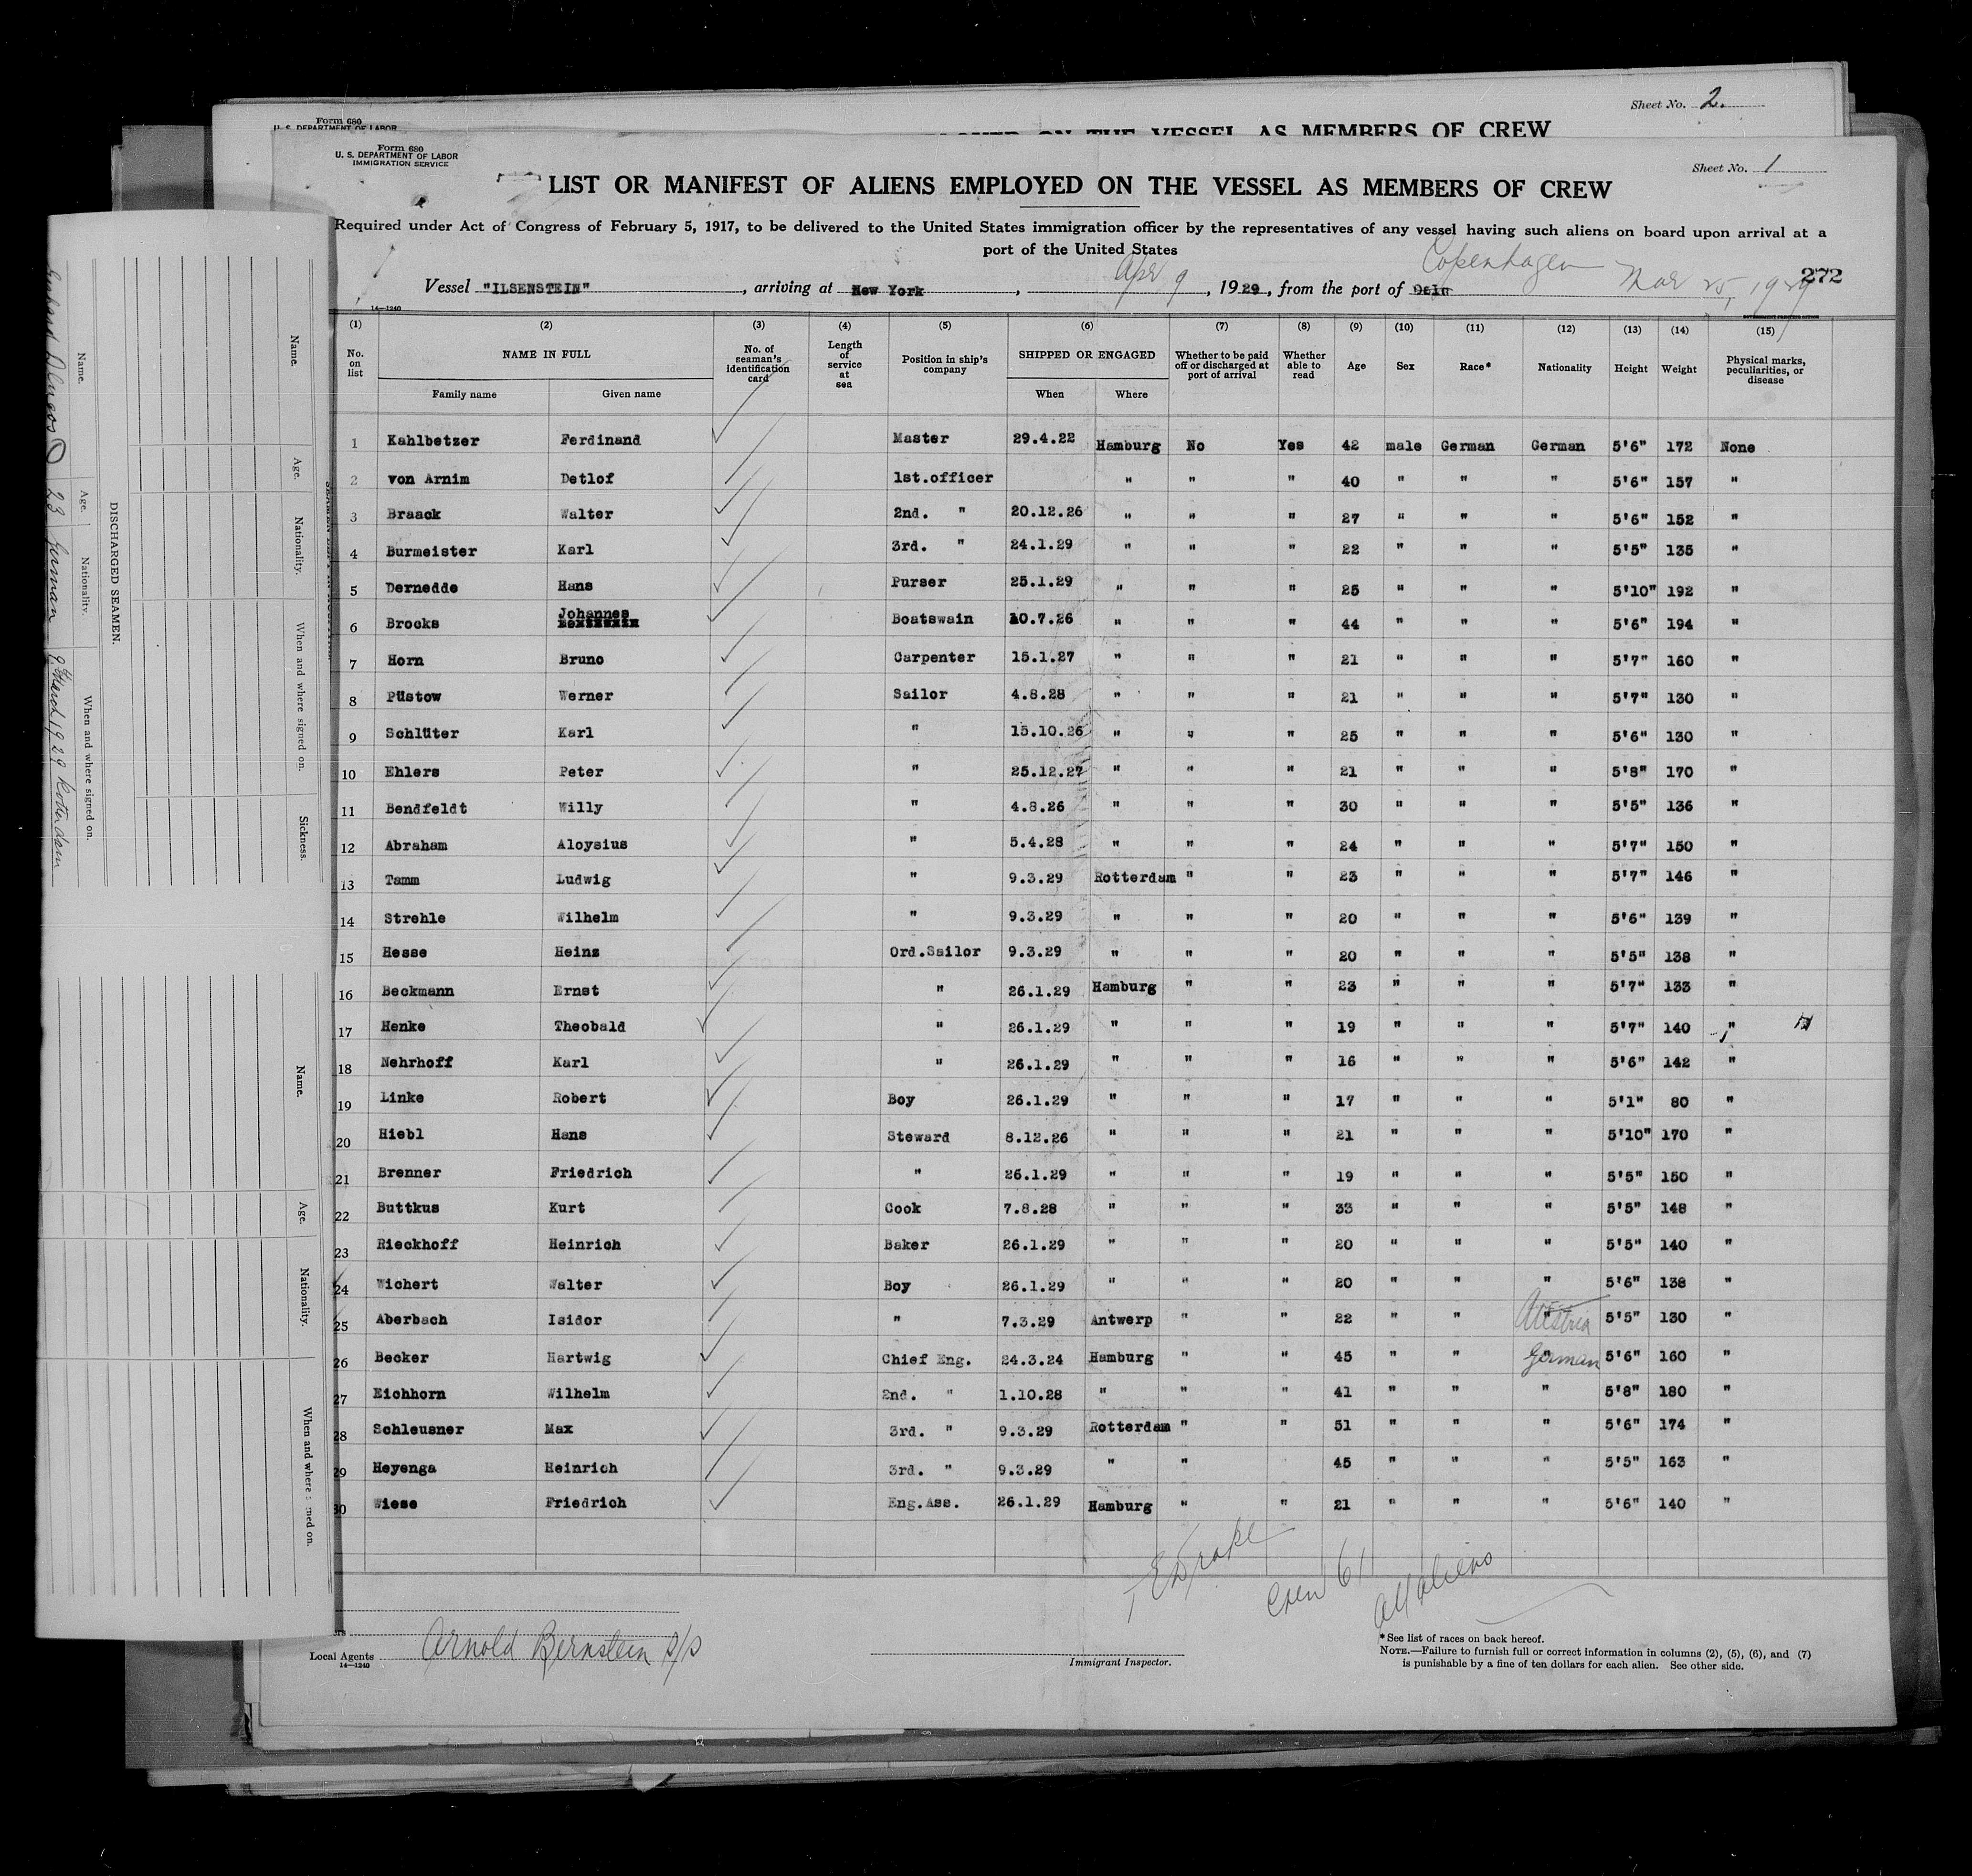 Sheet No. 2.
Form 680
U. S. DEPARTMENT OF LABOR
ON THE VESSEL AS MEMBERS OF CREW
Form 680
U. S. DEPARTMENT OF LABOR
IMMIGRATION SERVICE
Sheet No. 1
LIST OR MANIFEST OF ALIENS EMPLOYED ON THE VESSEL AS MEMBERS OF CREW
Required under Act of Congress of February 5, 1917, to be delivered to the United States immigration officer by the representatives of any vessel having such aliens on board upon arrival at a
port of the United States
Copenhagen
Vessel "ILSENSTEIN", arriving at New York, Apr 9, 1929, from the port of Mar 25, 1929 272
14—1240
(1) (2) (3) (4) (5) (6) (7) (8) (9) (10) (11) (12) (13) (14) (15)
No. on list NAME IN FULL Family name Given name No. of seaman's identification card Length of service at sea Position in ship's company SHIPPED OR ENGAGED When Where Whether to be paid off or discharged at port of arrival Whether able to read Age Sex Race* Nationality Height Weight Physical marks, peculiarities, or disease
1 Kahlbetzer Ferdinand Master 29.4.22 Hamburg No Yes 42 male German German 5'6" 172 None
2 von Arnim Detlof 1st.officer " " " 40 " " " 5'6" 157 "
3 Braack Walter 2nd. " 20.12.26 " " " 27 " " " 5'6" 152 "
4 Burmeister Karl 3rd. " 24.1.29 " " " 22 " " " 5'5" 135 "
5 Dernedde Hans Purser 25.1.29 " " " 25 " " " 5'10" 192 "
6 Brocks Johannes Boatswain 10.7.26 " " " 44 " " " 5'6" 194 "
7 Horn Bruno Carpenter 15.1.27 " " " 21 " " " 5'7" 160 "
8 Püstow Werner Sailor 4.8.28 " " " 21 " " " 5'7" 130 "
9 Schlüter Karl " 15.10.26 " " " 25 " " " 5'6" 130 "
10 Ehlers Peter " 25.12.27 " " " 21 " " " 5'8" 170 "
11 Bendfeldt Willy " 4.8.26 " " " 30 " " " 5'5" 136 "
12 Abraham Aloysius " 5.4.28 " " " 24 " " " 5'7" 150 "
13 Tamm Ludwig " 9.3.29 Rotterdam " " 23 " " " 5'7" 146 "
14 Strehle Wilhelm " 9.3.29 " " " 20 " " " 5'6" 139 "
15 Hesse Heinz Ord.Sailor 9.3.29 " " " 20 " " " 5'5" 138 "
16 Beckmann Ernst " 26.1.29 Hamburg " " 23 " " " 5'7" 133 "
17 Henke Theobald " 26.1.29 " " " 19 " " " 5'7" 140 "
18 Nehrhoff Karl " 26.1.29 " " " 16 " " " 5'6" 142 "
19 Linke Robert Boy 26.1.29 " " " 17 " " " 5'1" 80 "
20 Hiebl Hans Steward 8.12.26 " " " 21 " " " 5'10" 170 "
21 Brenner Friedrich " 26.1.29 " " " 19 " " " 5'5" 150 "
22 Buttkus Kurt Cook 7.8.28 " " " 33 " " " 5'5" 148 "
23 Rieckhoff Heinrich Baker 26.1.29 " " " 20 " " " 5'5" 140 "
24 Wichert Walter Boy 26.1.29 " " " 20 " " " 5'6" 138 "
25 Aberbach Isidor " 7.3.29 Antwerp " " 22 " " Austria 5'5" 130 "
26 Becker Hartwig Chief Eng. 24.3.24 Hamburg " " 45 " " German 5'6" 160 "
27 Eichhorn Wilhelm 2nd. " 1.10.28 " " 41 " " " 5'8" 180 "
28 Schleusner Max 3rd. " 9.3.29 Rotterdam " " 51 " " " 5'6" 174 "
29 Heyenga Heinrich 3rd. " 9.3.29 " " 45 " " " 5'5" 163 "
30 Wiese Friedrich Eng.Ass. 26.1.29 Hamburg " " 21 " " " 5'6" 140 "
Drake
Crew 61
All aliens
Local Agents Arnold Bernstein S/S
14—1240
Immigrant Inspector.
*See list of races on back hereof.
NOTE.—Failure to furnish full or correct information in columns (2), (5), (6), and (7)
is punishable by a fine of ten dollars for each alien. See other side.
Name. Age. Nationality. When and where signed on. Sickness.
DISCHARGED SEAMEN.
Name. Age. Nationality. When and where signed on.
23 German 9. March 1929 Rotterdam
Name. Age. Nationality. When and where signed on.